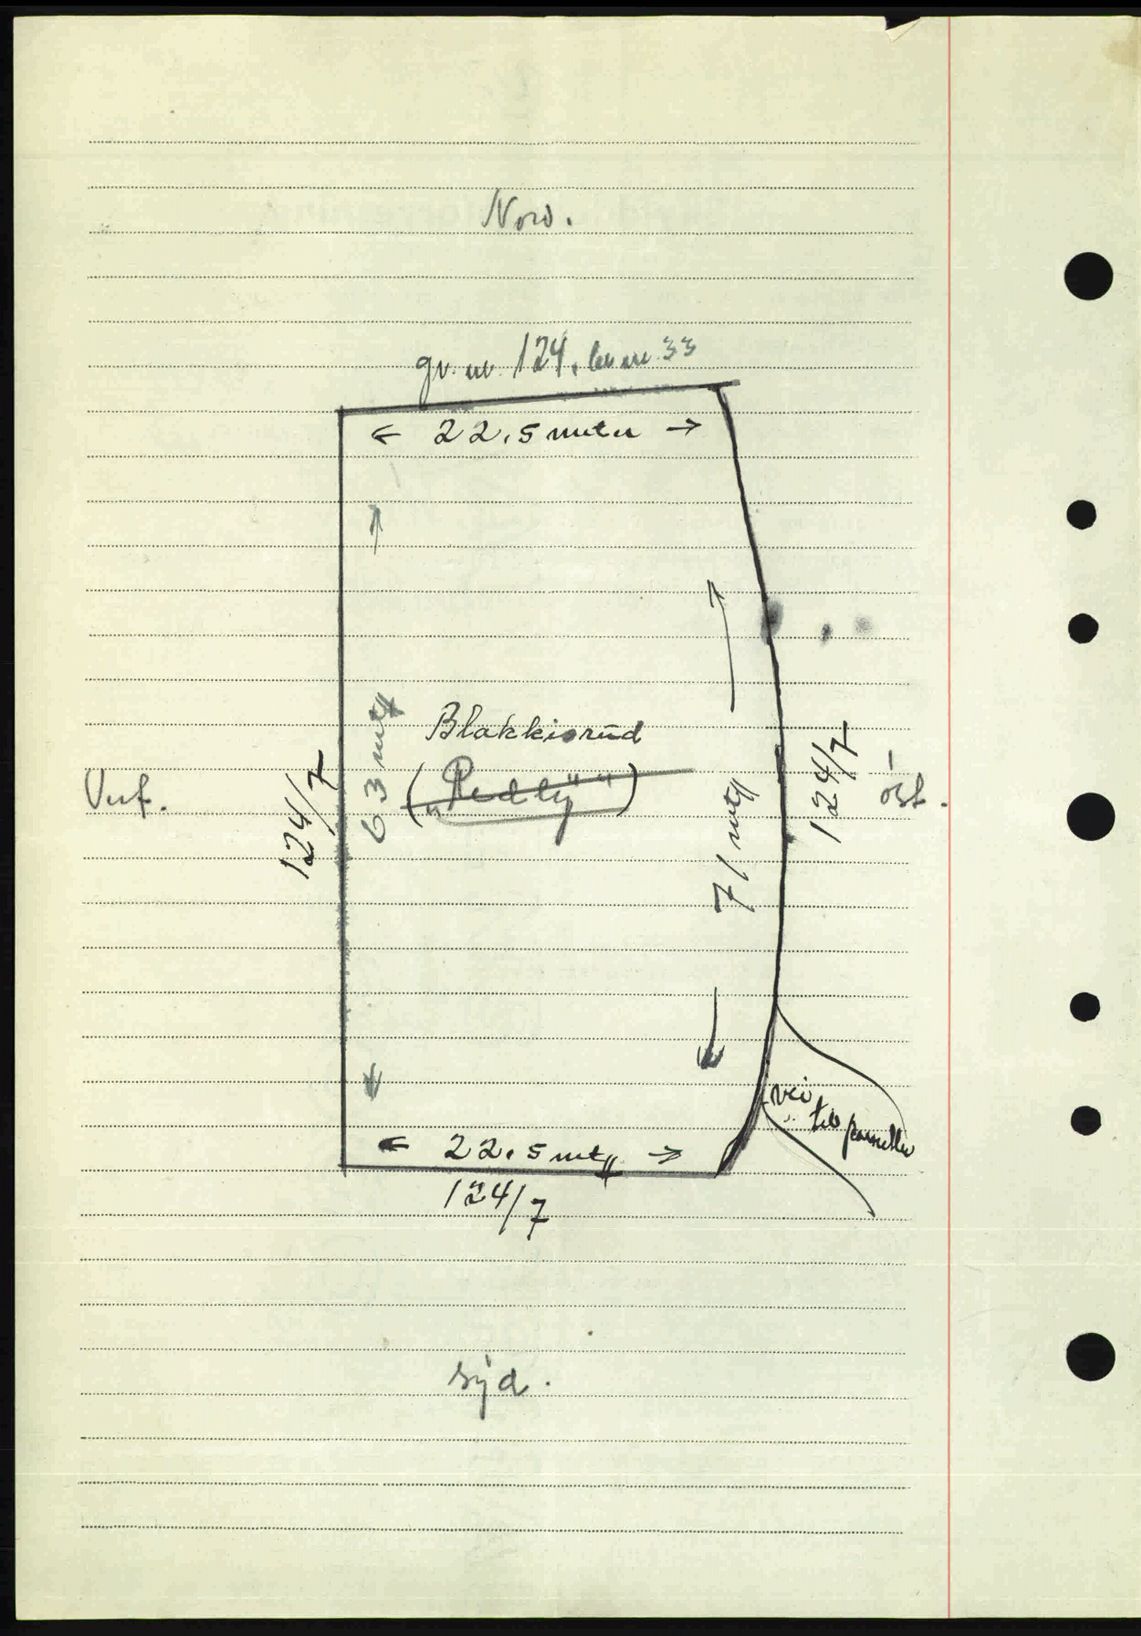 Nord.
gr. nr. 124, br. nr. 33
← 22,5 meter →
Vest.
124/7
63 mtr
Blakkisrud
71 mtr
124/7
öst.
vei til parsellen
← 22,5 mtr →
124/7
syd.